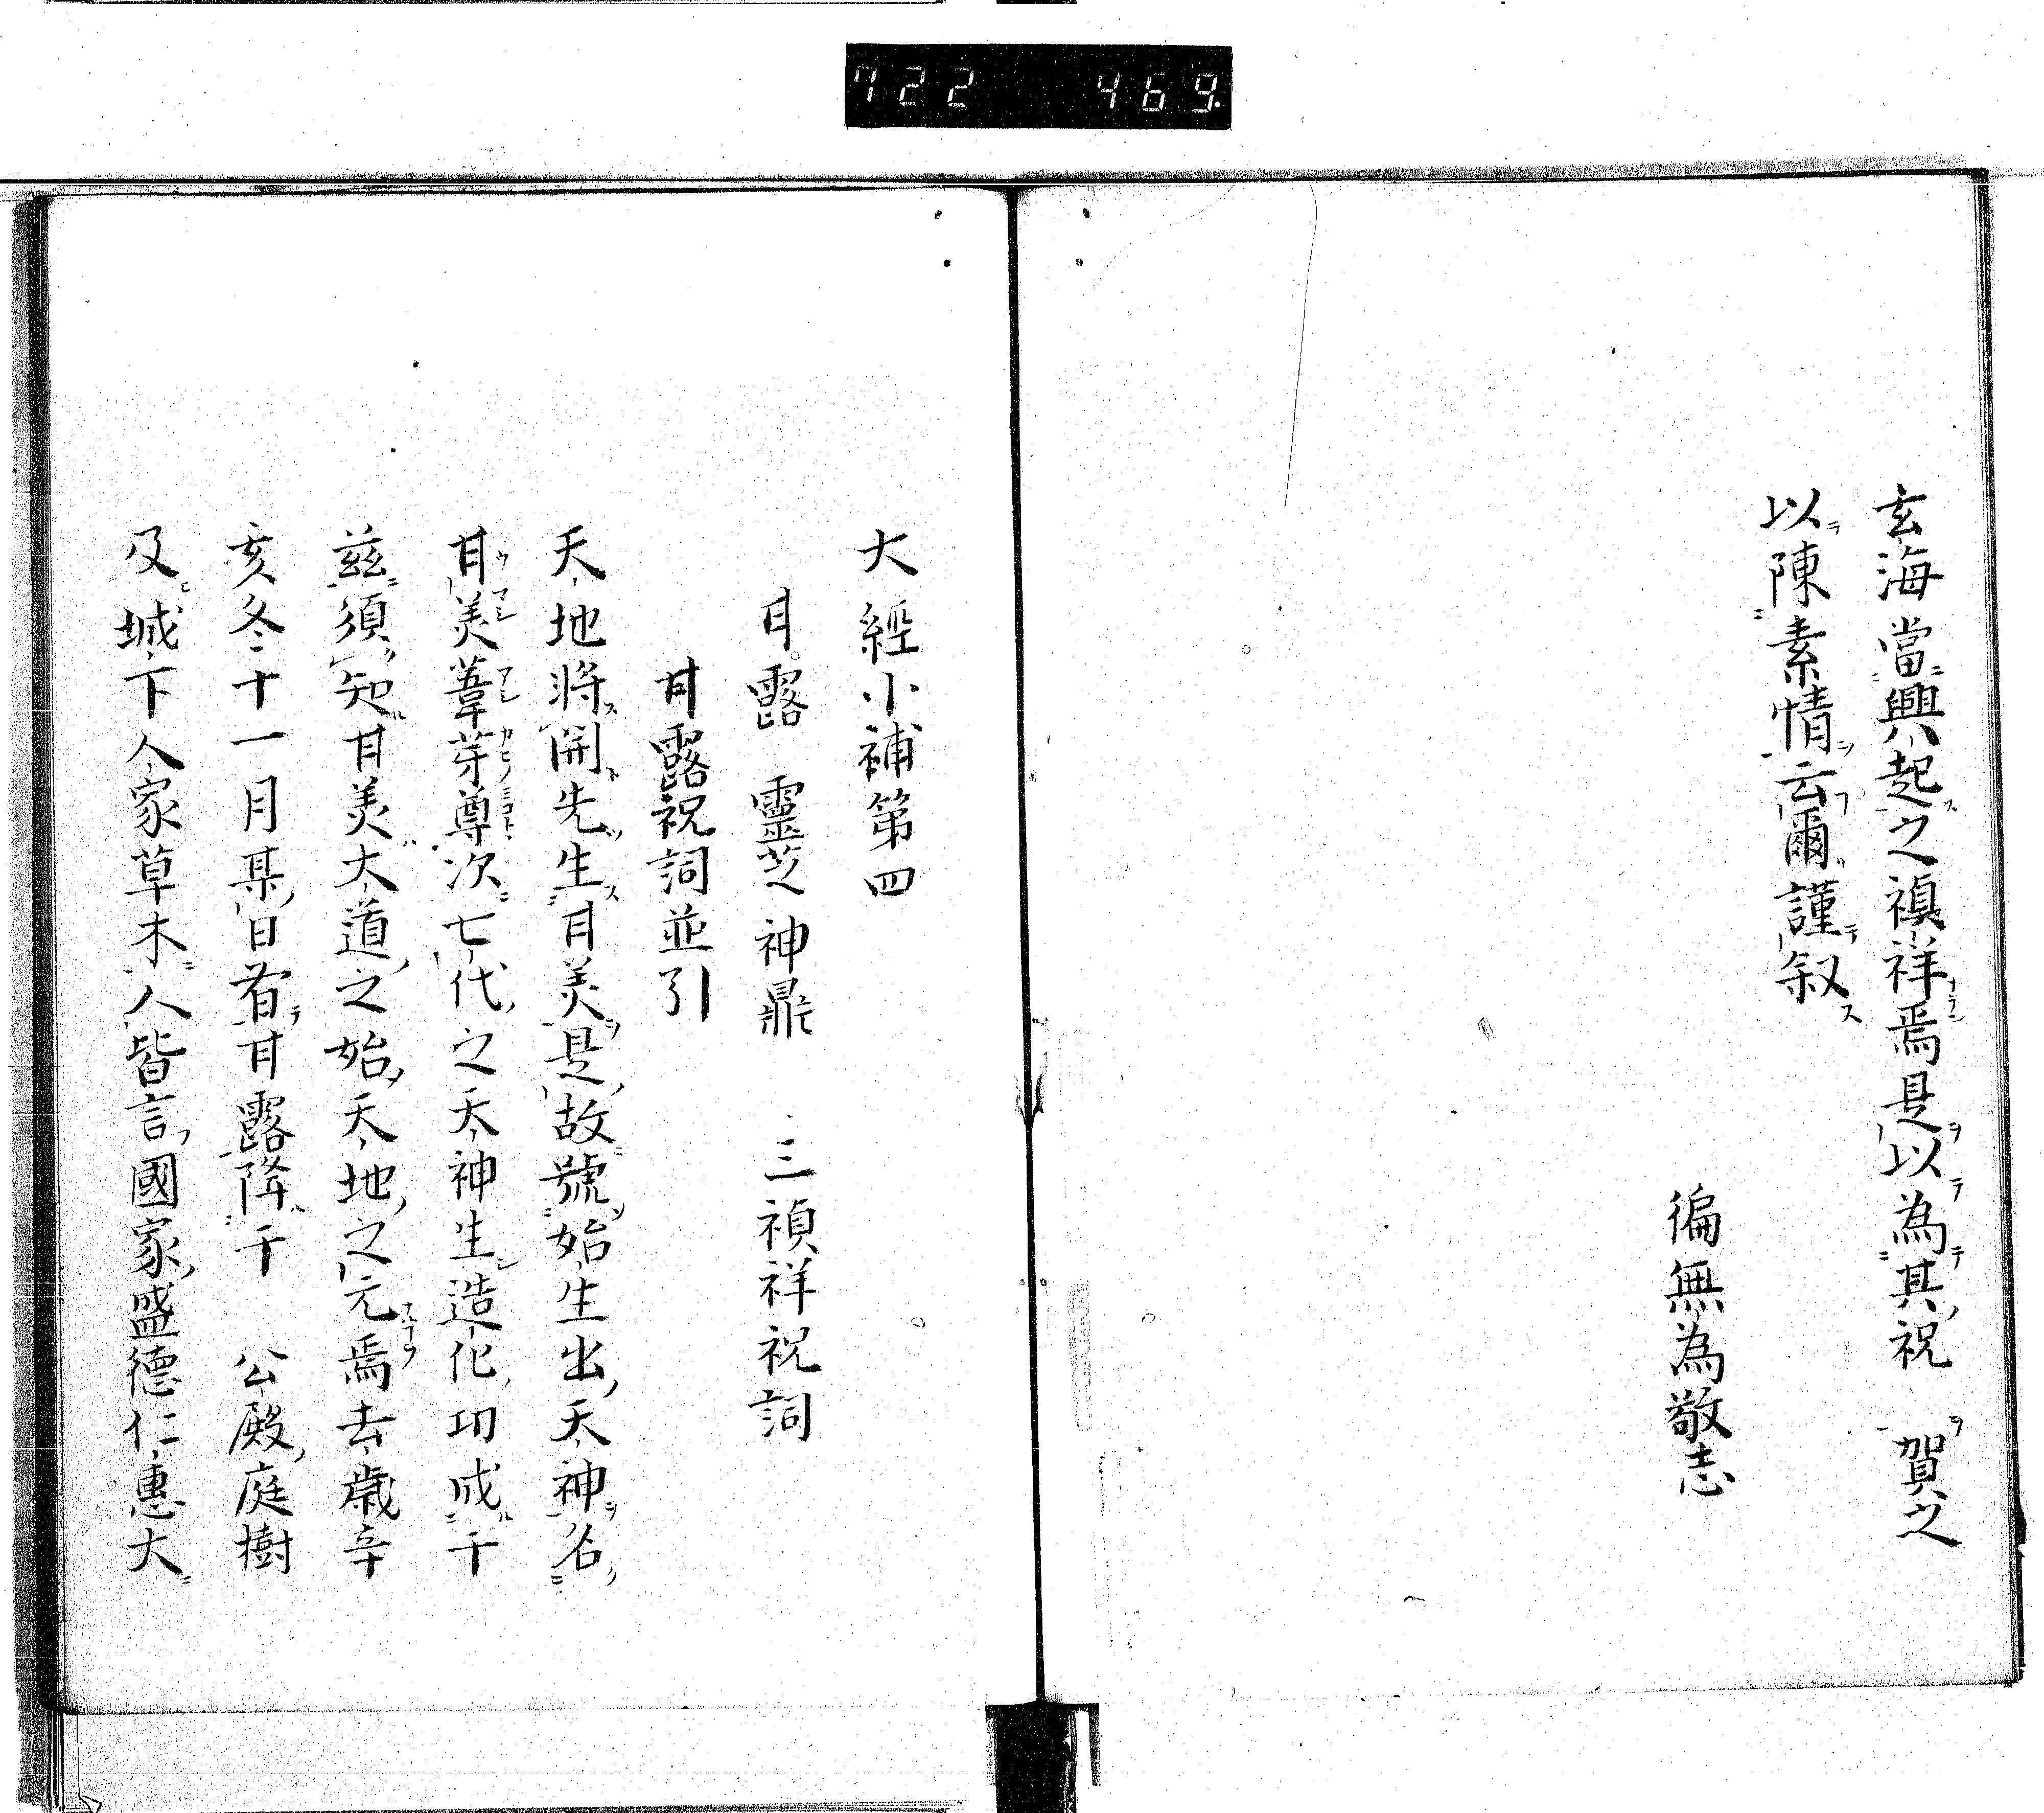 722 469.
玄海當興起之禎祥焉是以為其祝　賀之
以陳素情云爾謹叙
徧無為敬志
大經小補第四
甘露　靈芝神鼎　三禎祥祝詞
甘露祝詞並引
天地將開先生甘美是故號始生出天神名
甘美葦芽尊次七代之天神生造化功成于
茲須知甘美大道之始天地之元焉去歲辛
亥冬十一月某日有甘露降于　公殿庭樹
及城下人家草木人皆言國家盛德仁惠大